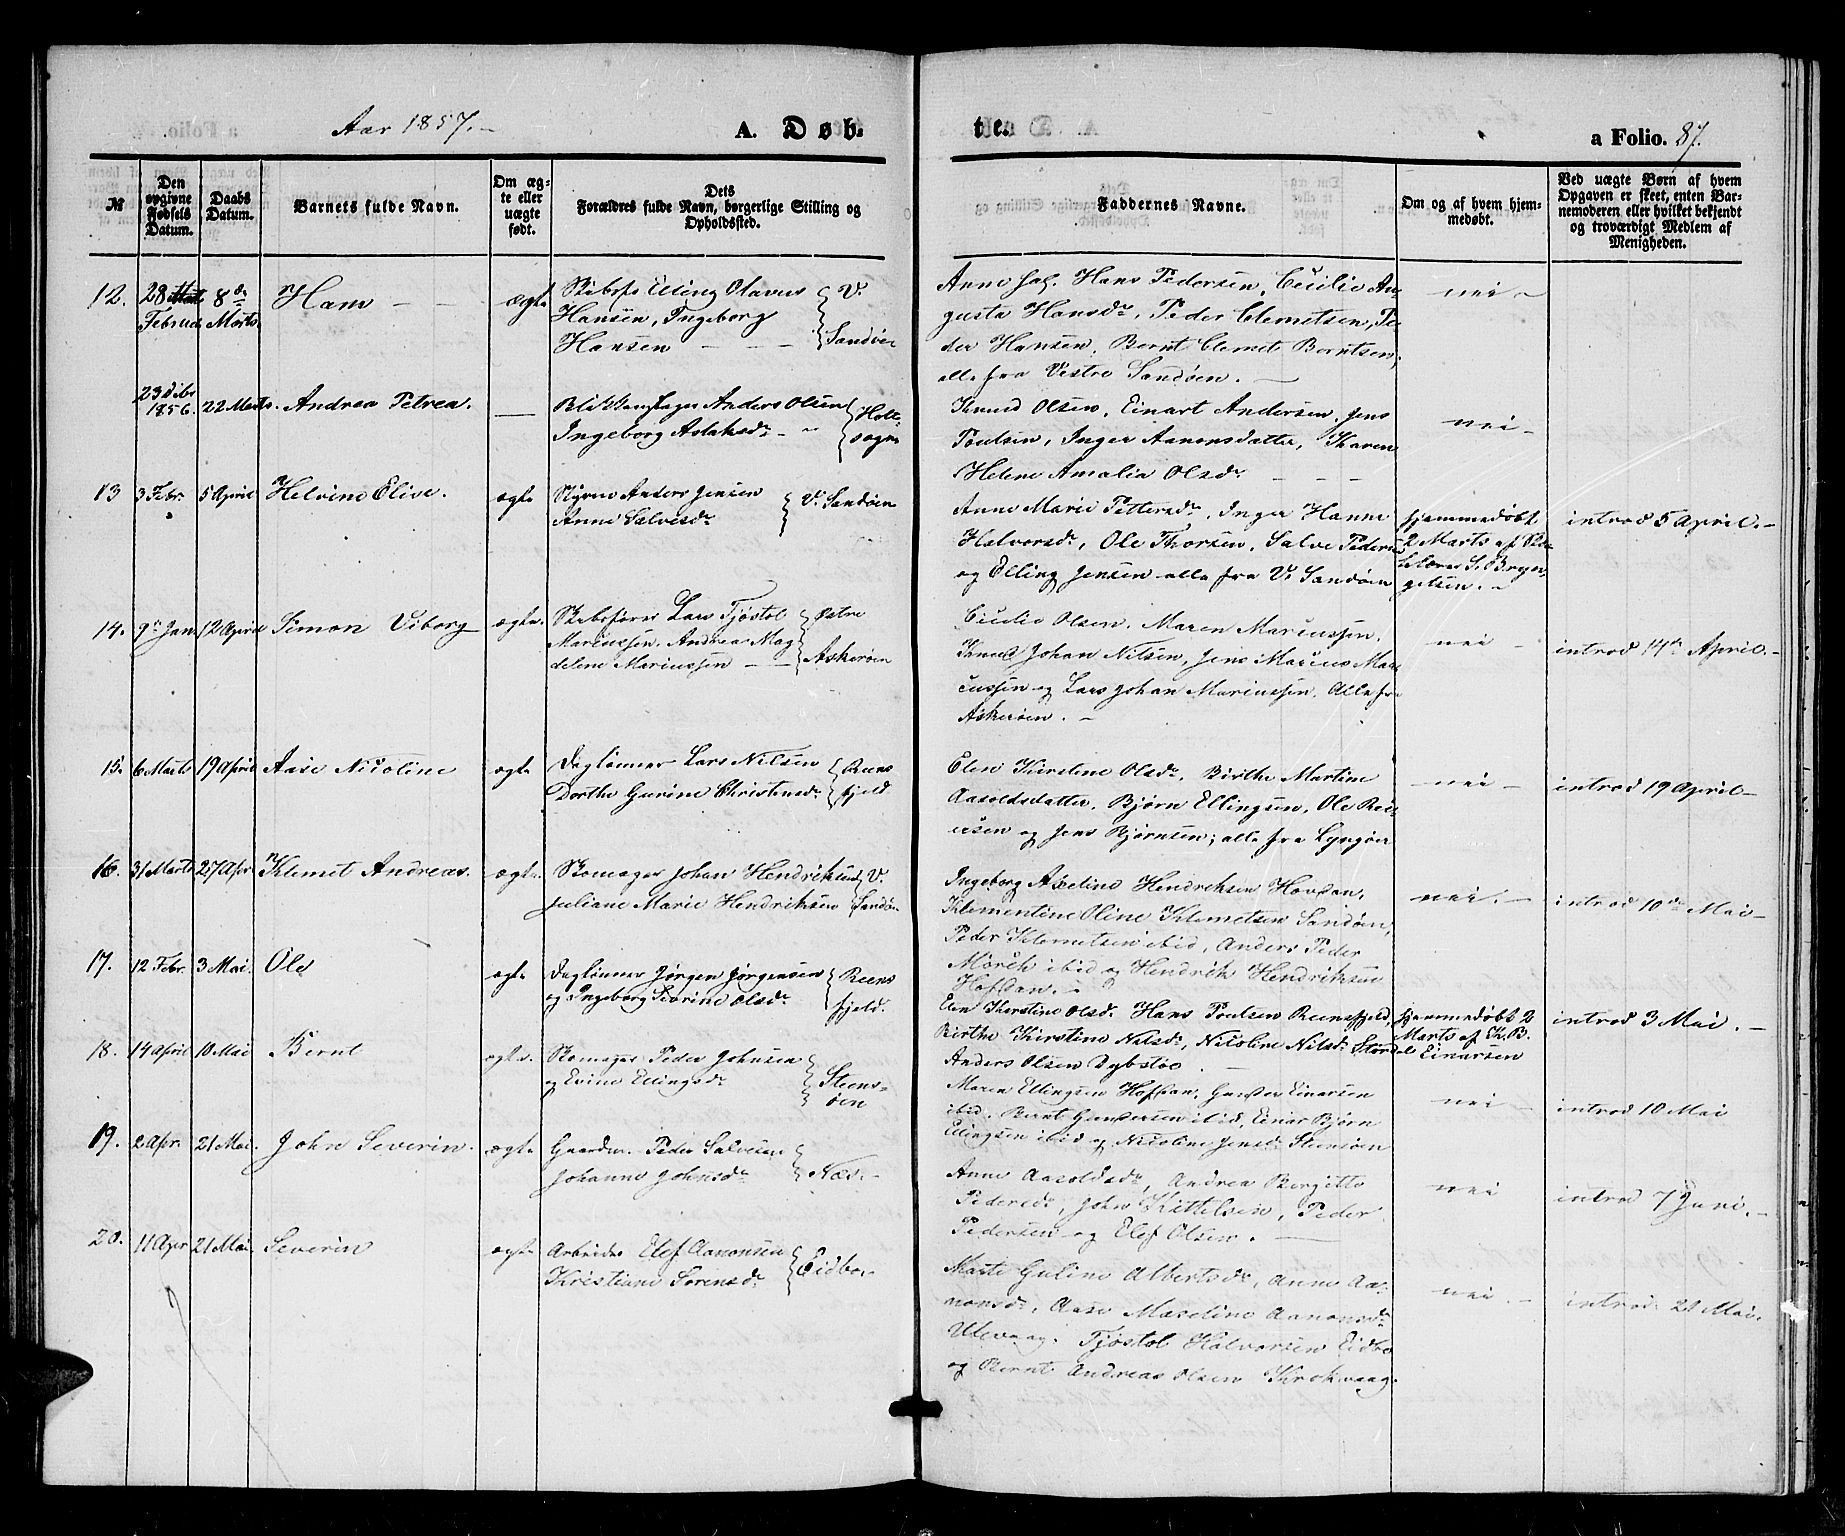 Aar 1857.-
A. Døb-
te.
a Folio. 87.
№
Den opgivne Fødsels Datum.
Daabs Datum.
Barnets fulde Navn.
Om ægte eller uægte født.
Dets Forældres fulde Navn, borgerlige Stilling og Opholdssted.
Faddernes Navne.
Om og af hvem hjemmedøbt.
Ved uægte Børn af hvem Opgaven er skeet, enten Barnemoderen eller hvilket bekjendt og troværdigt Medlem af Menigheden.
12.
28
Februar
8de
Marts
Hans
ægte
Elling Olaves
Hansen, Ingeborg
Hansen
V.
Sandøen
Hans Pedersen, Cecilie Au-
gusta Hansdr, Peder Clemetsen, Pe-
der Hansen, Bernt Clemet Berntsen,
alle fra Vestre Sandøen.
nei -
23 Dcbr
1856.
22 Marts.
Andrea Petrea.
Anders Olsen
Ingeborg Aslaksdr
Holte-
sogn
Knud Olsen, Einart Andersen, Jens
Poulsen, Inger Aanonsdatter, Karen
Helene Amalia Olsdr
nei -
13
3 Febr.
5 April
Helvine Elive.
ægte
Styrm Anders Jensen
Anne Salvesdr
V. Sandøen
Anne Marie Pettersdr, Inger Hanne
Halvorsdr, Ole Thorsen, Salve Pedersen
og Elling Jensen alle fra V. Sandøen
hjemmedøbt
2 Marts af Sko-
lelærer S. Bryn-
gelsen.
introd 5 April.-
14.
9de Jan
12 April
Simon Viborg
ægte.
Skibsfører Lars Tjøstol
Marcussen, Andrea Mag
delene Mariussen
Østre
Askerøen
Cicilie Olsen, Maren Marcussen,
Knud Johan Nilsen, Jens Marcus Mar-
cussen og Lars Johan Mariussen. Alle fra
Askerøen.
nei -
introd 14de April.-
15.
6 Marts
19 April
Aase Nicoline
ægte
Daglønner Lars Nilsen
Dorthe Gurine Christensdr
Reens
fjeld
Elen Kirstine Olsdr, Birthe Martine
Aasoldsdatter, Bjørn Ellingsen, Ole Rei-
ersen og Jens Bjørnsen; alle fra Lyngøer
nei -
introd 19 April-
16.
31 Marts
27 Apr.
Klemet Andreas.
ægte.
Skomager Johan Hendriksen
Juliane Marie Hendriksen
V.
Sandøen
Ingeborg Axeline Hendriksen Hovdan,
Klementine Oline Klemetsen Sandøen,
Peder Klemetsen ibid, Anders Peder
Mörch ibid og Hendrik Hendriksen
Hofdan.
nei. -
introd 10de Mai-
17.
12 Febr.
3 Mai.
Ole
ægte
Daglønner Jørgen Jørgensen
og Ingeborg Severine Olsdr
Reens
fjeld.
Elen Kirstine Olsdr Hans Poulsen Reensfjeld,
Birthe Kirstine Nilsdr, Nicoline Nilsdr Stordal
Anders Olsen Dybsløe.
hjemmedøbt 2
Marts af Kr. B.
Einarsen
introd 3 Mai. -
18.
14 April
10 Mai
Bernt
ægte.
Skomager Peder Johnsen
og Evine Ellingsdr
Steens-
øen
Maren Ellingsen Hofdan, Gunder Einarsen
ibid, Bernt Gundersen ibid, Einar Bjørn
Ellingsen ibid og Nicoline Jensdr Steensøen
nei -
introd 10 Mai
19.
2 Apr.
21 Mai.
John Severin.
ægte
Gaardm. Peder Salvesen
Johanne Johnsdr
Næs.-
Anne Aasoldsdr, Andrea Bergitte
Pedersdr, John Kittelsen, Peder
Pedersen og Elef Olsen.
nei
introd 7 Juni.-
20.
11 Apr
21 Mai.
Severin
ægte
Arbeider Elef Aanonsen
Kristiane Sørensdr
Eidbo.
Marte Guline Albertsdr, Anne Aa-
nonsdr, Aase Maseline Aanonsdr
Ulevaag. Tjøstol Halvorsen Eidbo
og Bernt Andreas Olsen Krokvaag.
nei. -
introd. 21 Mai.